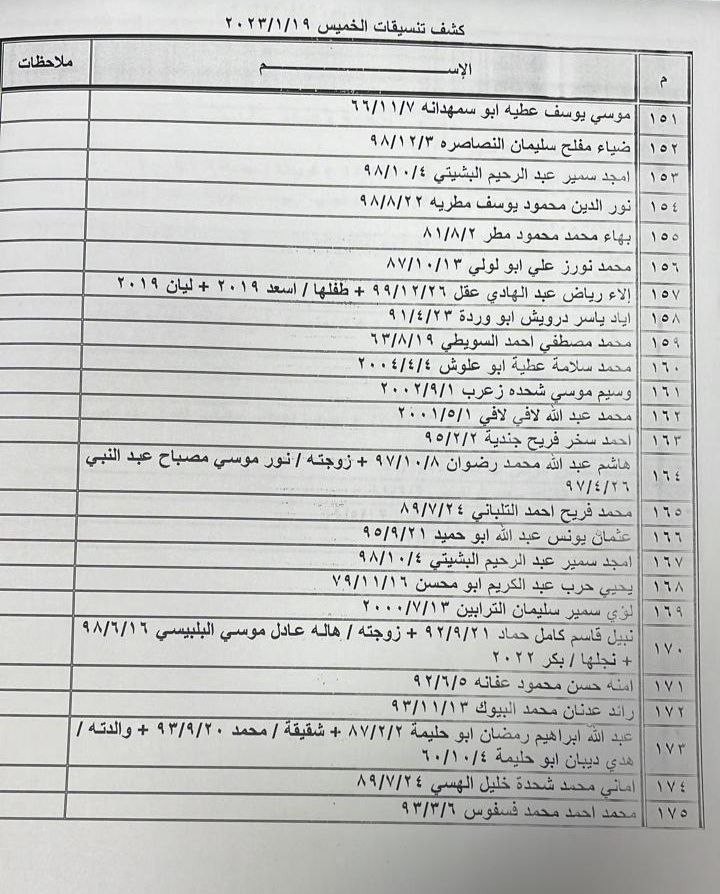 كشف تنسيقات الخميس ٢٠٢٣/١/١٩
م الإســـــــــم ملاحظات
١٥١ موسي يوسف عطيه ابو سمهدانه ٦٦/١١/٧
١٥٢ ضياء مفلح سليمان النصاصره ٩٨/١٢/٣
١٥٣ امجد سمير عبد الرحيم البشيتي ٩٨/١٠/٤
١٥٤ نور الدين محمود يوسف مطريه ٩٨/٨/٢٢
١٥٥ بهاء محمد محمود مطر ٨١/٨/٢
١٥٦ محمد نورز علي ابو لولي ٨٧/١٠/١٣
١٥٧ الاء رياض عبد الهادي عقل ٩٩/١٢/٢٦ + طفلها / اسعد ٢٠١٩ + ليان ٢٠١٩
١٥٨ اياد ياسر درويش ابو وردة ٩١/٤/٢٣
١٥٩ محمد مصطفي احمد السويطي ٦٣/٨/١٩
١٦٠ محمد سلامة عطية ابو علوش ٢٠٠٤/٤/٤
١٦١ وسيم موسي شحده زعرب ٢٠٠٢/٩/١
١٦٢ محمد عبد الله لافي لافي ٢٠٠١/٥/١
١٦٣ احمد سخر فريح جندية ٩٥/٢/٢
١٦٤ هاشم عبد الله محمد رضوان ٩٧/١٠/٨ + زوجته / نور موسي مصباح عبد النبي
٩٧/٤/٢٦
١٦٥ محمد فريح احمد التلباني ٨٩/٧/٢٤
١٦٦ عثمان يونس عبد الله ابو حميد ٩٥/٩/٢١
١٦٧ امجد سمير عبد الرحيم البشيتي ٩٨/١٠/٤
١٦٨ يحيي حرب عبد الكريم ابو محسن ٧٩/١١/١٦
١٦٩ لؤي سمير سليمان الترابين ٢٠٠٠/٧/١٣
١٧٠ نبيل قاسم كامل حماد ٩٢/٩/٢١ + زوجته / هاله عادل موسي البلبيسي ٩٨/٦/١٦
+ نجلها / بكر ٢٠٢٢
١٧١ امنه حسن محمود عفانه ٩٢/٦/٥
١٧٢ رائد عدنان محمد البيوك ٩٣/١١/١٣
١٧٣ عبد الله ابراهيم رمضان ابو حليمة ٨٧/٢/٢ + شقيقة / محمد ٩٣/٩/٢٠ + والدته /
هدي ديبان ابو حليمة ٦٠/١٠/٤
١٧٤ اماني محمد شحدة خليل الهسي ٨٩/٧/٢٤
١٧٥ محمد احمد محمد فسفوس ٩٣/٣/٦